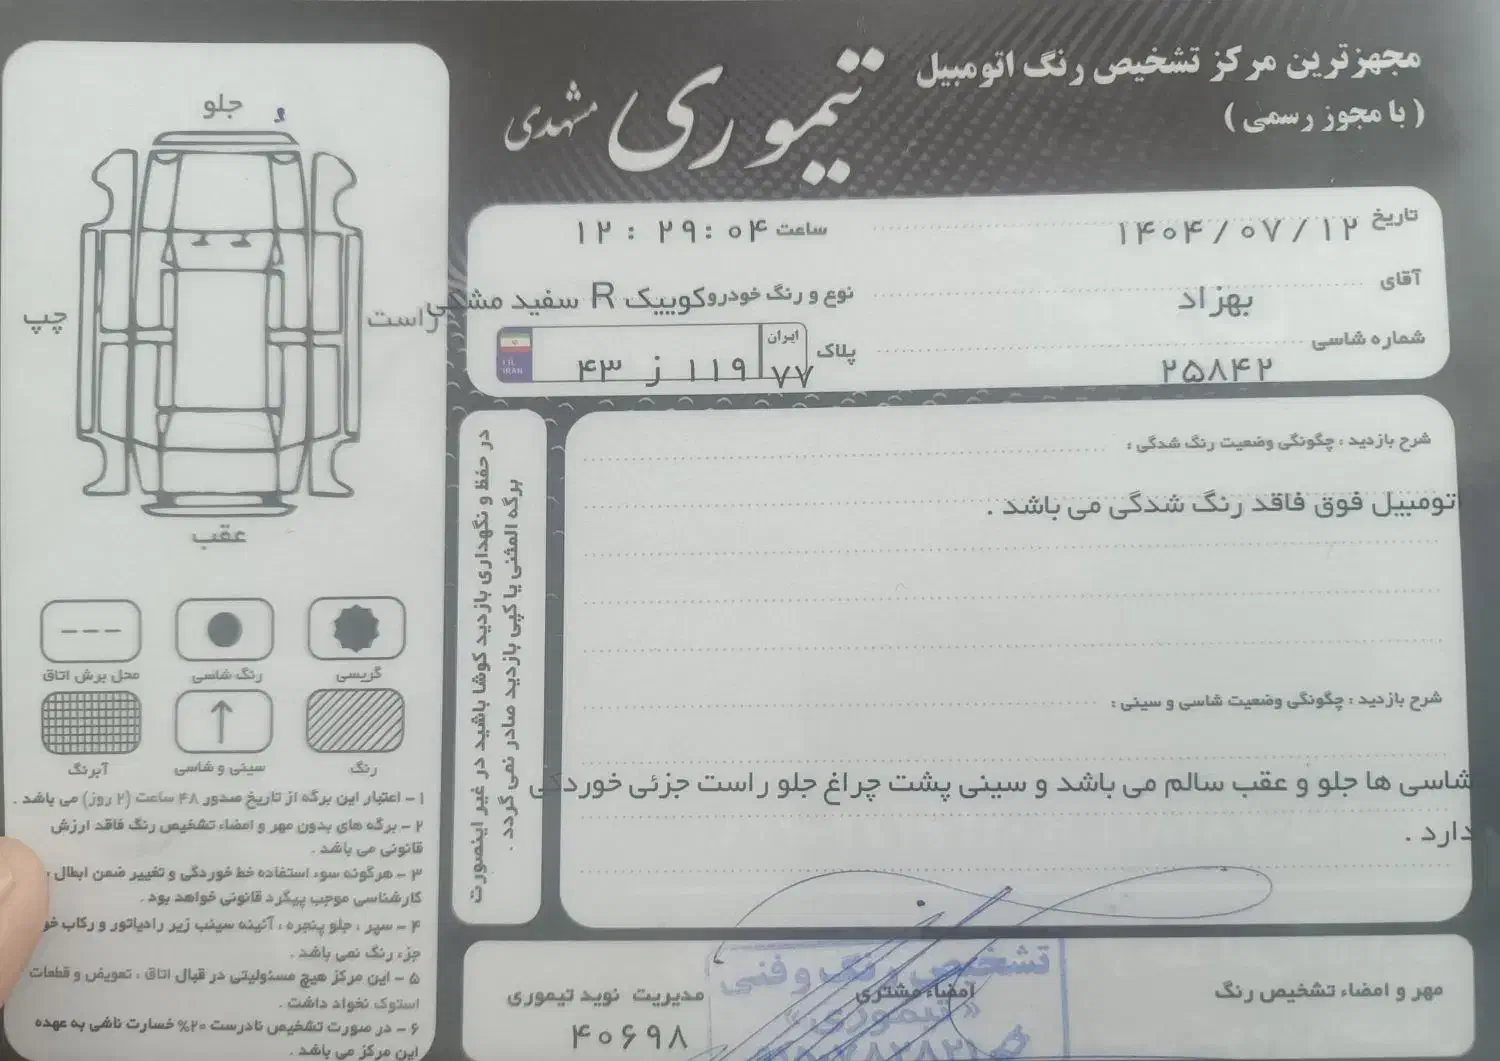 مجهزترین مرکز تشخیص رنگ اتومبیل
( با مجوز رسمی )
تیموری مشهدی
تاریخ ۱۴۰۴/۰۷/۱۲
ساعت ۱۲:۲۹:۰۴
آقای بهزاد
نوع و رنگ خودرو کوییک R سفید مشکی
شماره شاسی ۲۵۸۴۲
پلاک ایران ۷۷ ۱۱۹ ز ۴۳
I.R.
IRAN
شرح بازدید : چگونگی وضعیت رنگ شدگی :
اتومبیل فوق فاقد رنگ شدگی می باشد .
شرح بازدید : چگونگی وضعیت شاسی و سینی :
شاسی ها جلو و عقب سالم می باشد و سینی پشت چراغ جلو راست جزئی خوردگی
دارد .
در حفظ و نگهداری بازدید کوشا باشید در غیر اینصورت
برگه المثنی یا کپی بازدید صادر نمی گردد .
جلو
راست
چپ
عقب
گریسی
رنگ شاسی
محل برش اتاق
رنگ
سینی و شاسی
آبرنگ
۱- اعتبار این برگه از تاریخ صدور ۴۸ ساعت (۲ روز) می باشد .
۲- برگه های بدون مهر و امضاء تشخیص رنگ فاقد ارزش
قانونی می باشد .
۳- هرگونه سوء استفاده خط خوردگی و تغییر ضمن ابطال
کارشناسی موجب پیگرد قانونی خواهد بود .
۴- سپر ، جلو پنجره ، آئینه سینی زیر رادیاتور و رکاب
جزء رنگ نمی باشد .
۵- این مرکز هیچ مسئولیتی در قبال اتاق ، تعویض و قطعات
استوک نخواد داشت .
۶- در صورت تشخیص نادرست ۲۰% خسارت ناشی به عهده
این مرکز می باشد .
مهر و امضاء تشخیص رنگ
امضاء مشتری
مدیریت نوید تیموری
۴۰۶۹۸
تشخیص رنگ و فنی
« تیموری »